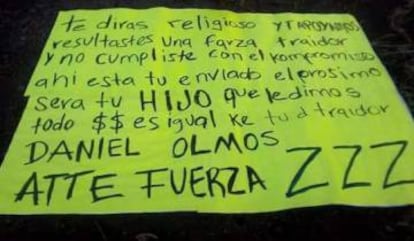 te diras religioso y TAPODYNIMOS
resultastes una farza, traidor
y no cumpliste con el kompromiso
ahi esta tu enviado el prosimo
sera tu HIJO que ledimos
todo $$ es igual ke tu d traidor
DANIEL OLMOS
ATTE FUERZA ZZZ